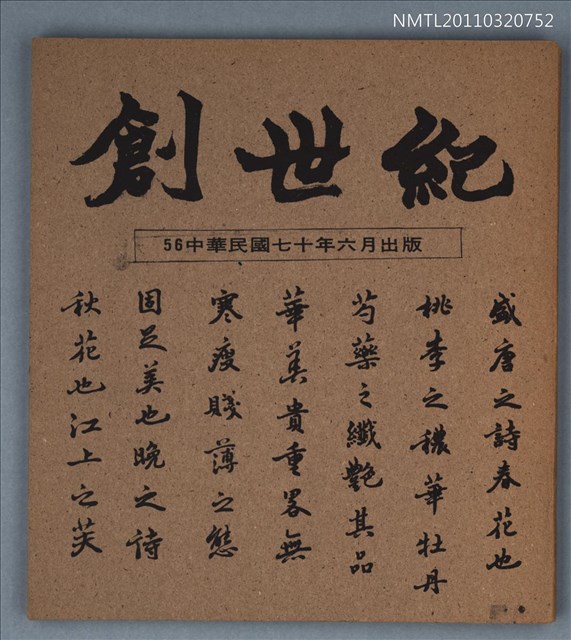 NMTL20110320752
創世紀
56中華民國七十年六月出版
盛唐之詩春花也
桃李之穠華牡丹
芍藥之纖艷其品
華美貴重畧無
寒瘦賤薄之態
固足美也晚之詩
秋花也江上之芙